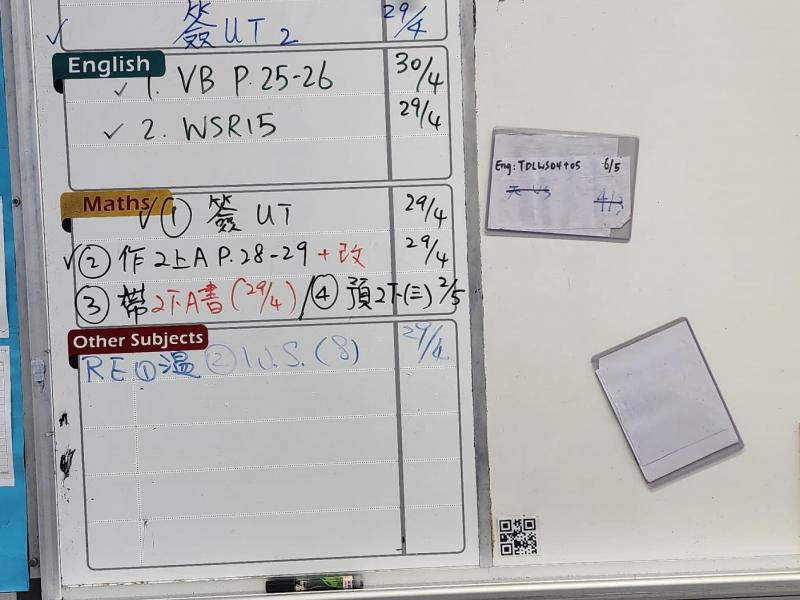 ✓ 簽 UT 2 29/4
English
✓ 1. VB P.25-26 30/4
✓ 2. WSR15 29/4
Maths
✓ ① 簽 UT 29/4
✓ ② 作 2上A P.28-29 + 改 29/4
③ 帶 2下A書 (29/4) / ④ 預 2下(三) 2/5
Other Subjects
RE ① 溫 ② W.S. (8) 29/4
Eng: TDLWS04+05 6/5